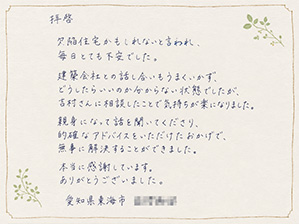 拝啓
欠陥住宅かもしれないと言われ、
毎日とても不安でした。
建築会社との話し合いもうまくいかず、
どうしたらいいのか分からない状態でしたが、
吉村さんに相談したことで気持ちが楽になりました。
親身になって話を聞いてくださり、
的確なアドバイスをいただけたおかげで、
無事に解決することができました。
本当に感謝しています。
ありがとうございました。
愛知県東海市